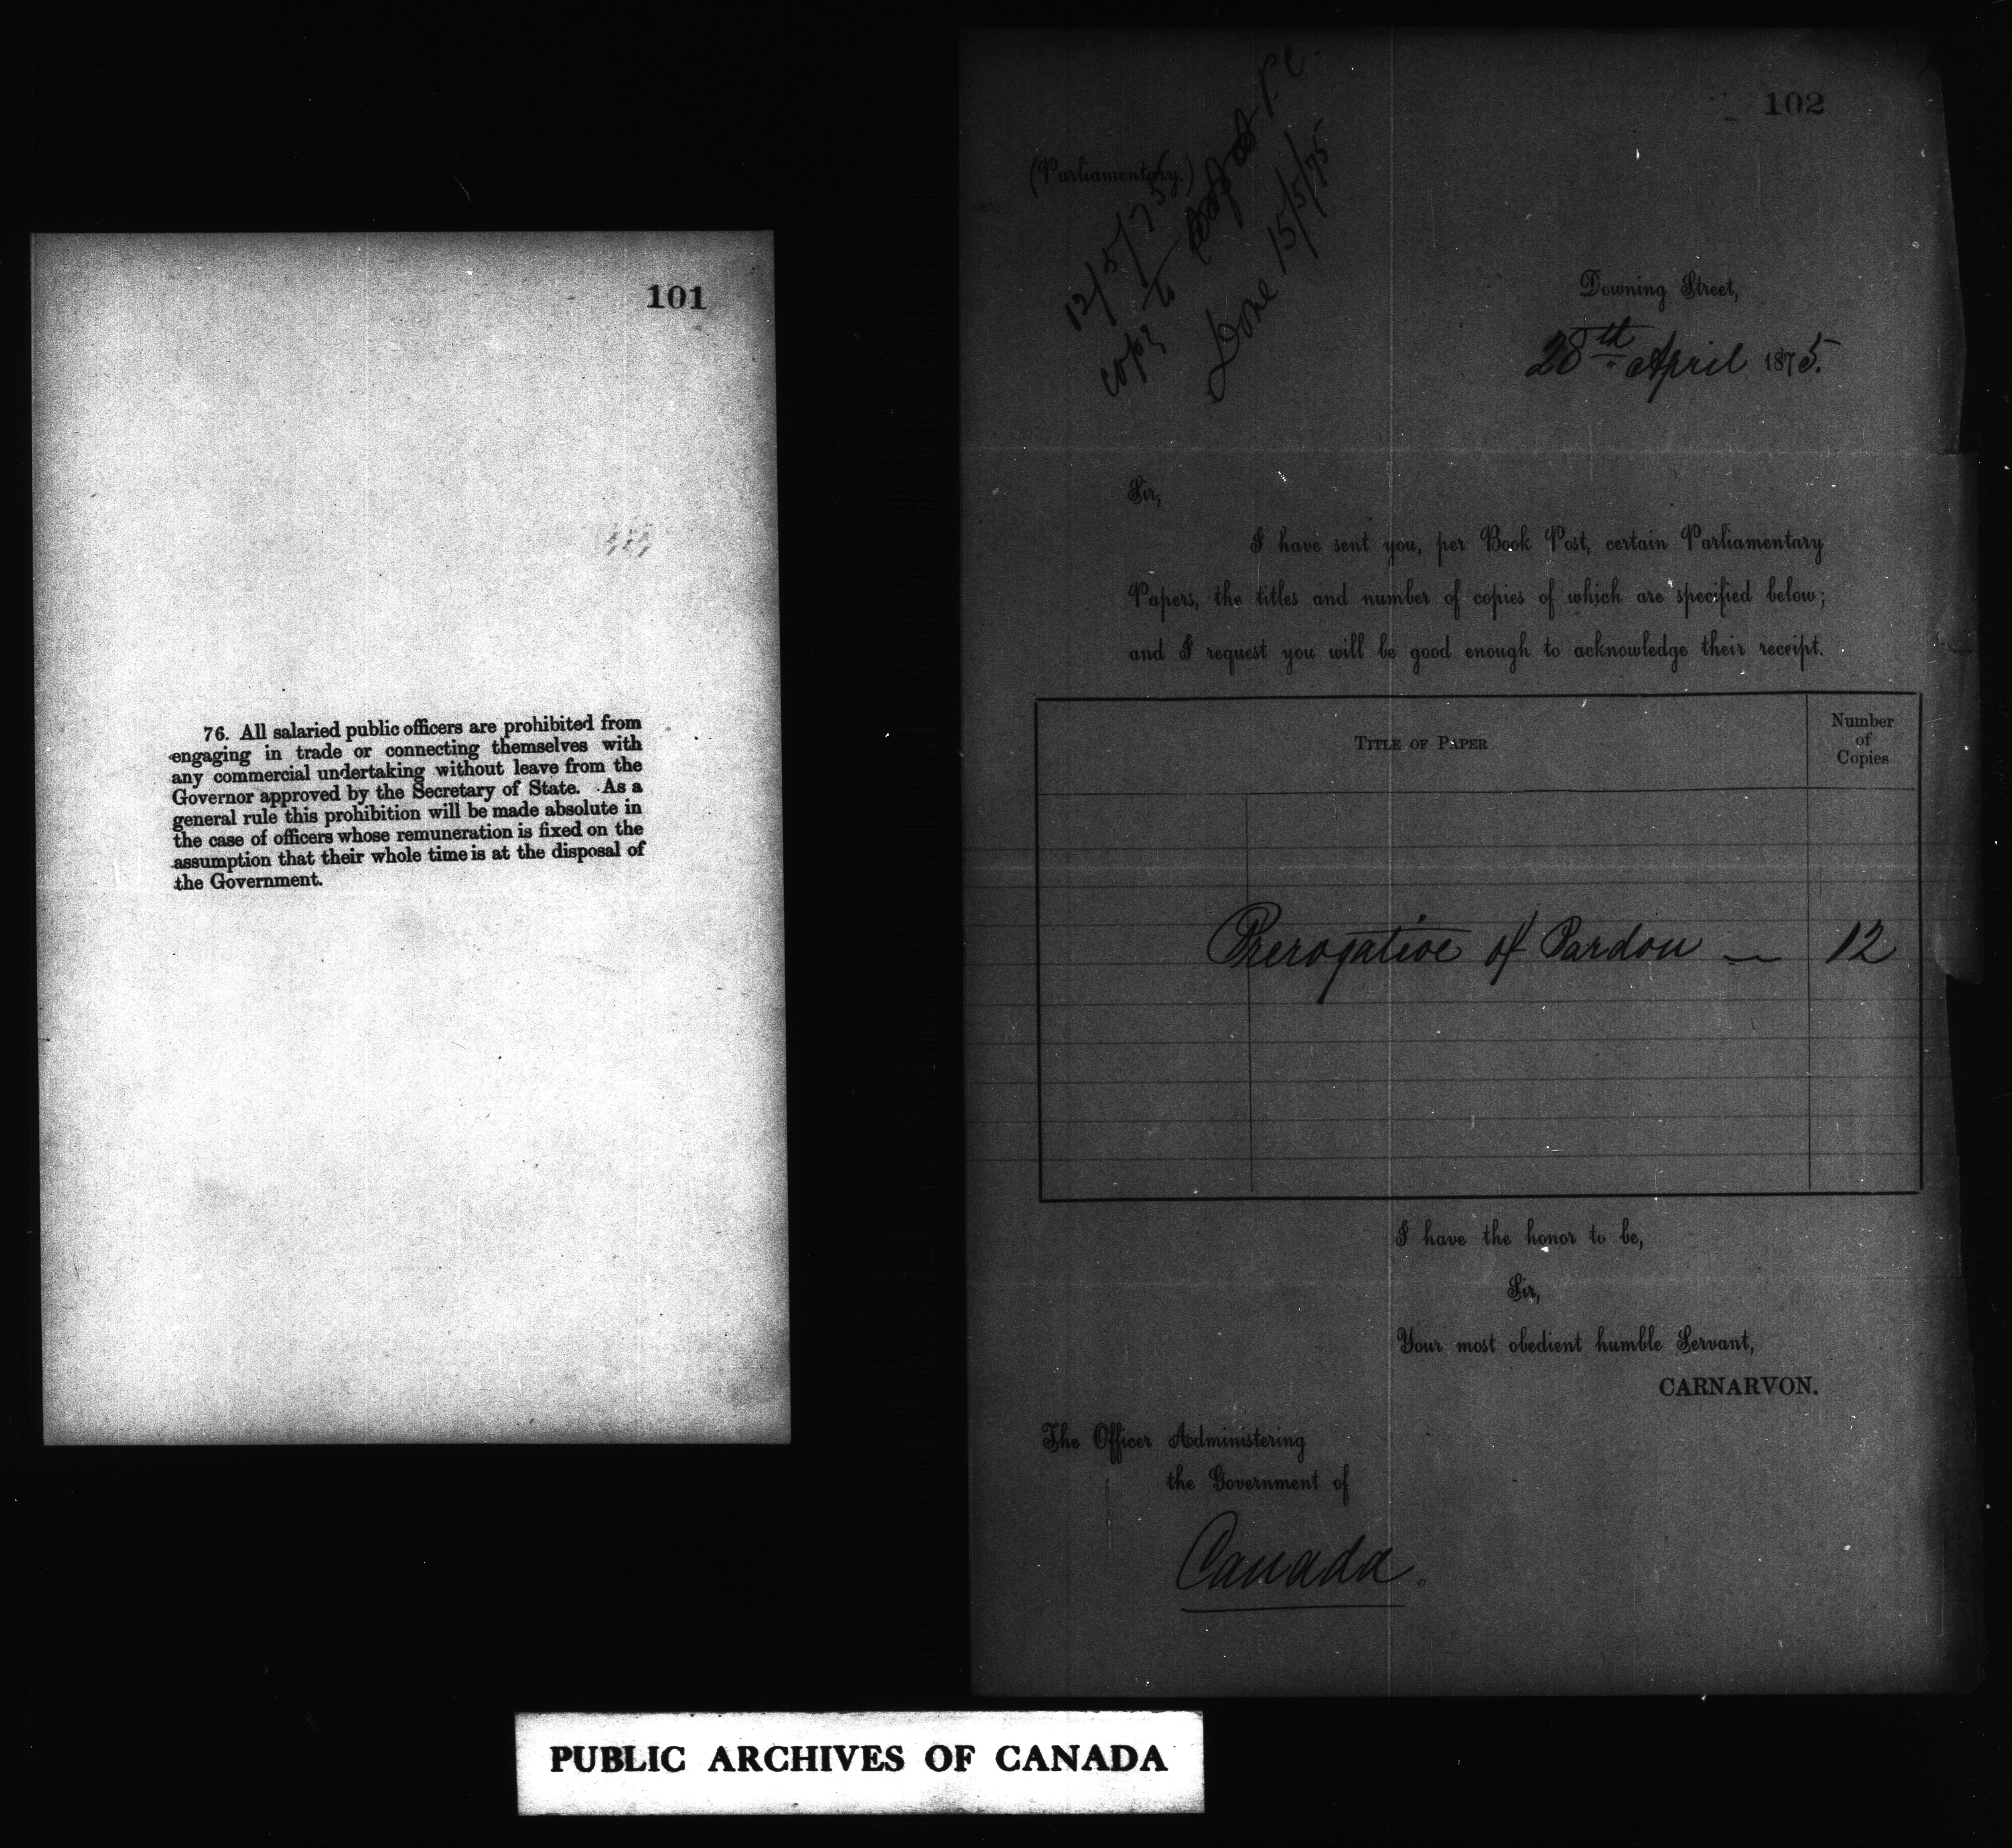 101
76. All salaried public officers are prohibited from
engaging in trade or connecting themselves with
any commercial undertaking without leave from the
Governor approved by the Secretary of State. As a
general rule this prohibition will be made absolute in
the case of officers whose remuneration is fixed on the
assumption that their whole time is at the disposal of
the Government.
102
(Parliamentary.)
12/5/75
copy to
Done 15/5/75
Downing Street,
28th April 1875.
Sir,
I have sent you, per Book Post, certain Parliamentary
Papers, the titles and number of copies of which are specified below;
and I request you will be good enough to acknowledge their receipt.
TITLE OF PAPER
Number
of
Copies
Prerogative of Pardon — 12
I have the honor to be,
Sir,
Your most obedient humble Servant,
CARNARVON.
The Officer Administering
the Government of
Canada.
PUBLIC ARCHIVES OF CANADA